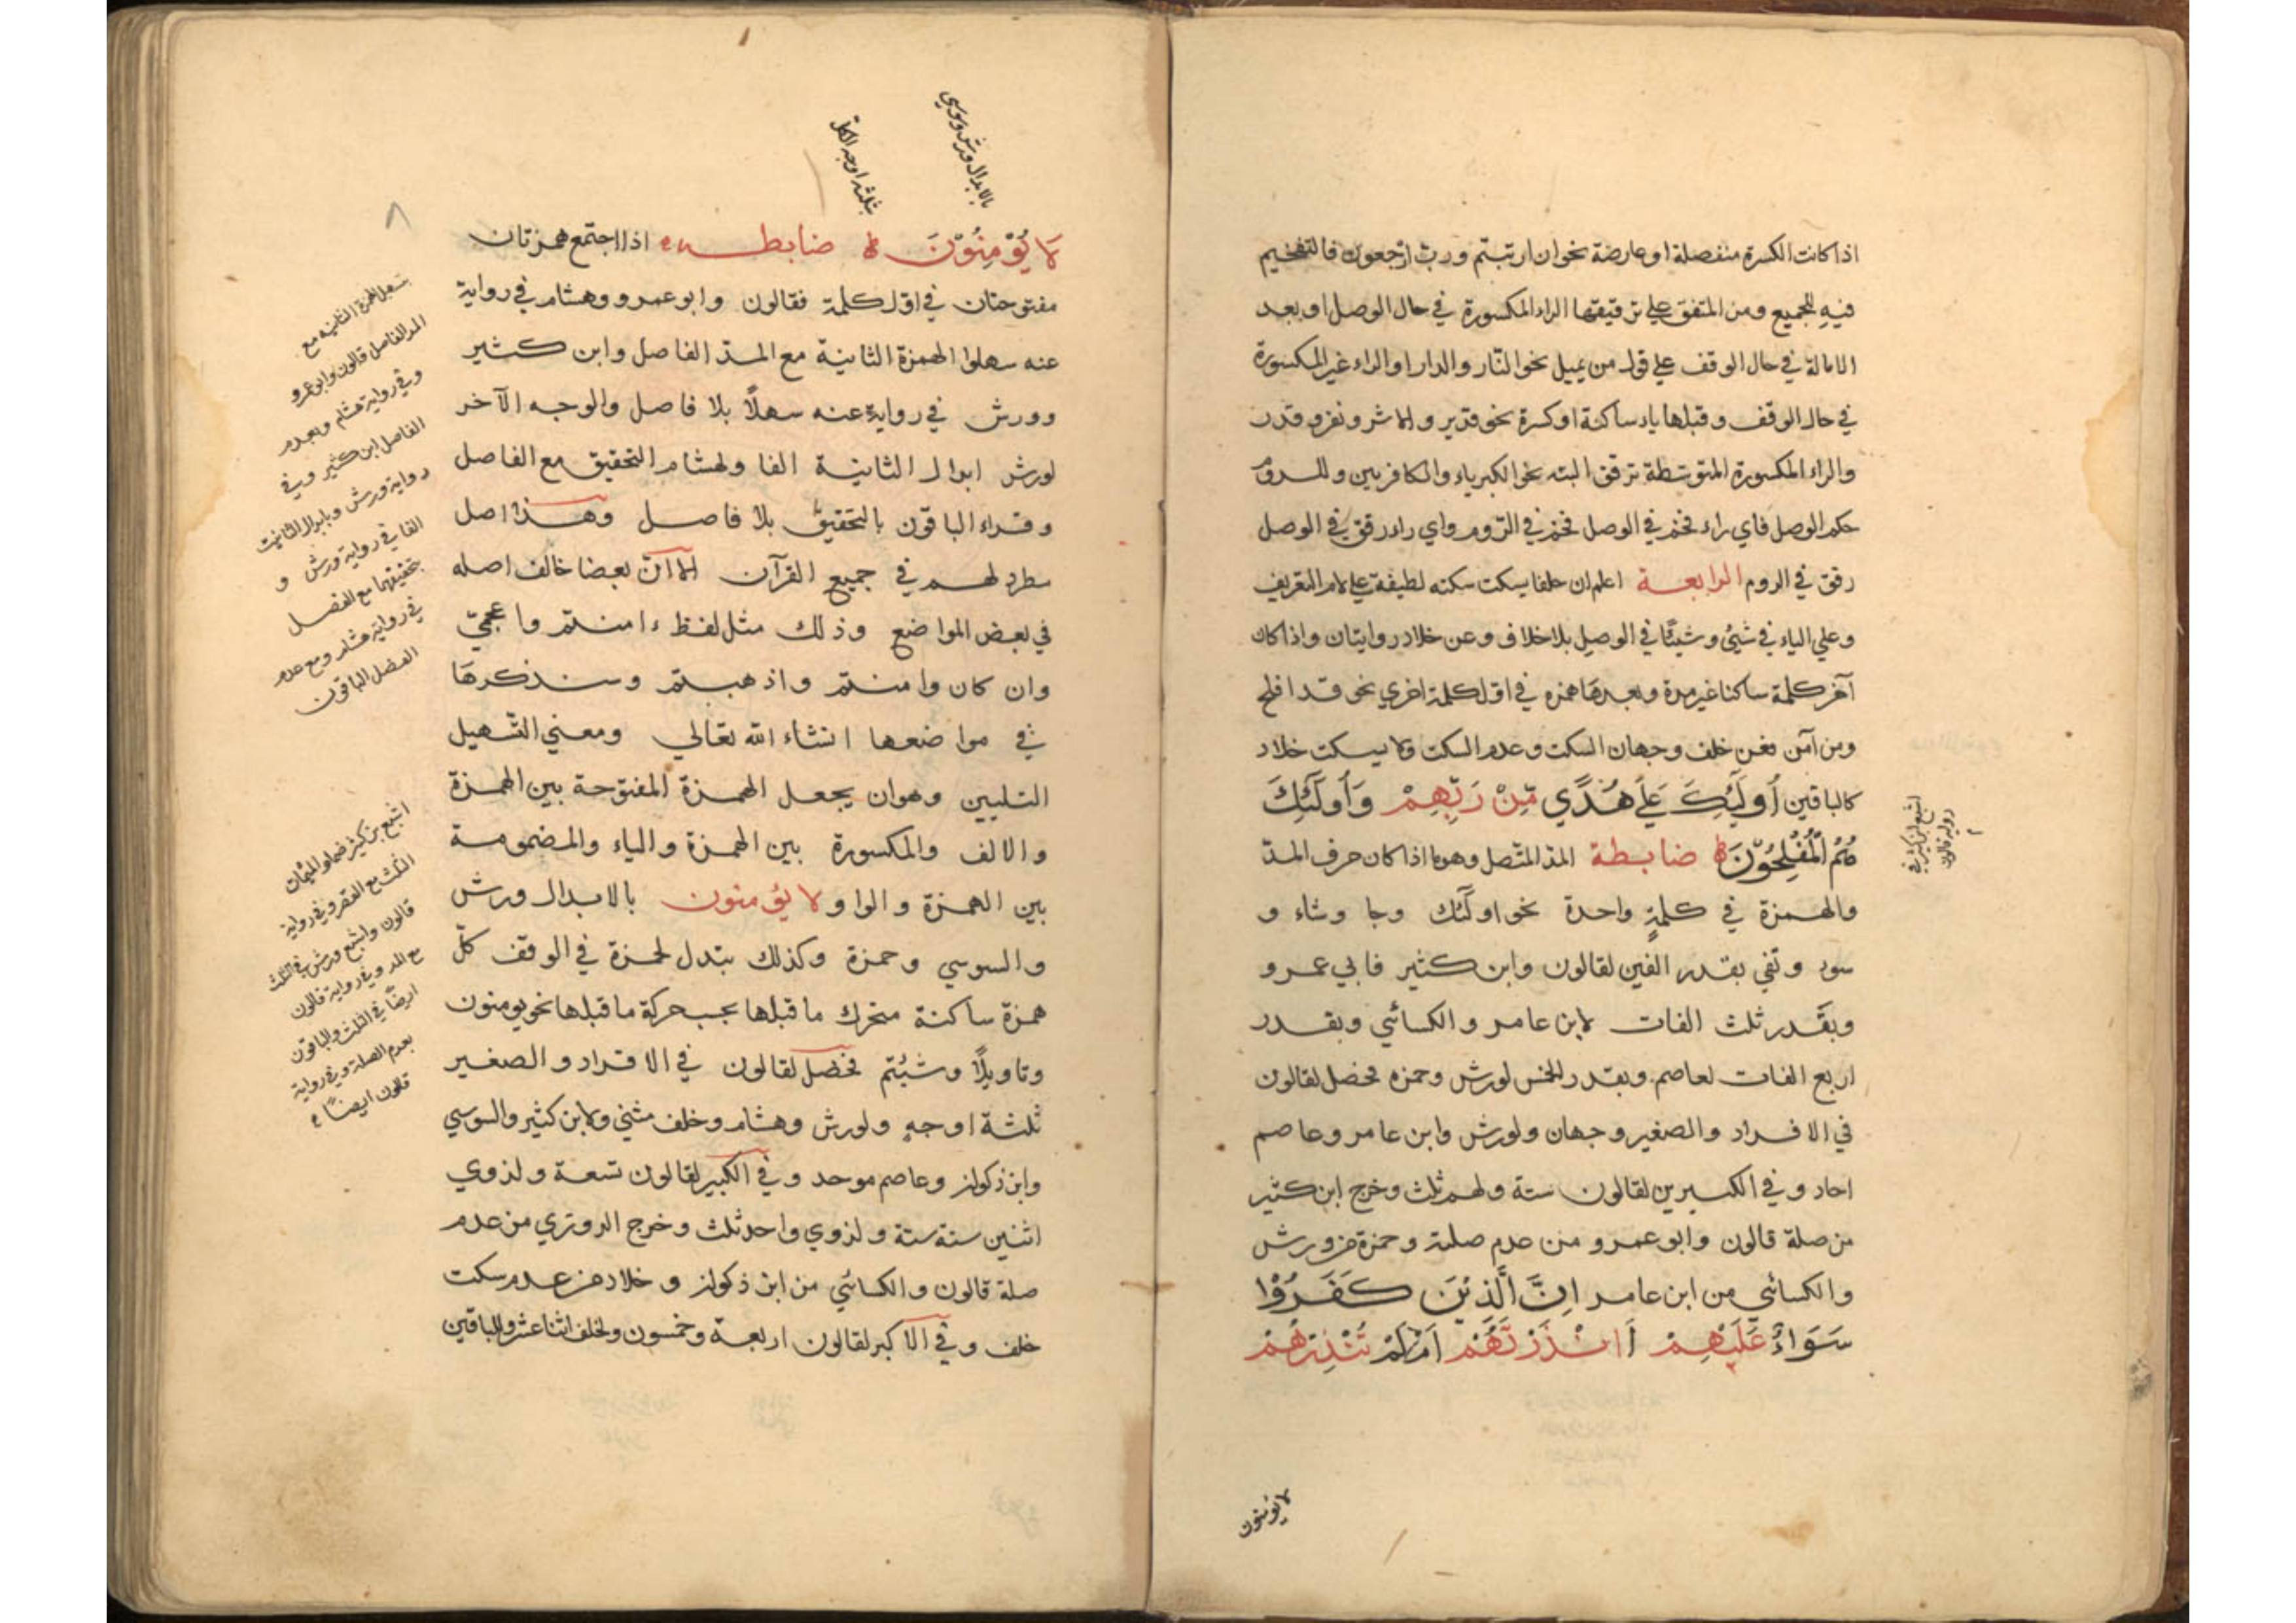 اذا كانت الكسرة منفصلة او عارضة نحو ان ارتبتم ورب ارجعون فالتفخيم
فيه للجميع ومن المتفق علي ترقيقها الراء المكسورة في حال الوصل او بعد
الامالة في حال الوقف علي قول من يميل نحو النّار والدار او الراء غير المكسورة
في حال الوقف وقبلها ياء ساكنة او كسرة نحو قدير والاشر ونغزو قدر
والراء المكسورة المتوسّطة ترقق البته نحو الكبرياء والكافرين وللروم
حكم الوصل فاي راء فخم في الوصل فخم في الرّوم واي راء رقق في الوصل
رقق في الروم الرابعة اعلم ان خلفا يسكت سكته لطيفة علي لام التعريف
وعلي الياء في شيئ وشيئًا في الوصل بلا خلاف وعن خلاد روايتان واذا كان
آخر كلمة ساكنا غير مدة وبعدها همزه في اوّل كلمة اخري نحو قد افلح
ومن آمن فعن خلف وجهان السكت وعدم السكت ولا يسكت خلاد
كالباقين أُولَٓئِكَ عَلَي هُدًي مِّنْ رَبِّهِمْ وَأُولَٓئِكَ
هُمُ الْمُفْلِحُوْنَ ضابطة المد المتّصل وهو ما اذا كان حرف المدّ
والهمزة في كلمةٍ واحدة نحو اولٓئك وجا وشاء و
سوء وتفي بقدر الفين لقالون وابن كثير فابي عمرو
وبقَدر ثلث الفات لابن عامر والكسائي وبقدر
اربع الفات لعاصم وبقدر الخمس لورش وحمزه فحصل لقالون
في الافراد والصغير وجهان ولورش وابن عامر وعاصم
احاد وفي الكبيرين لقالون ستة ولهم ثلث وخرج ابن كثير
من صلة قالون وابو عمرو من عدم صلته وحمزة من ورش
والكسائي من ابن عامر اِنَّ الَّذِيْنَ كَفَرُوْا
سَوَاءٌ عَلَيْهِمْ أَانْذَرْتَهُمْ اَمْ لَمْ تُنْذِرْهُمْ
لا يؤمنون
اشبع ابن كثير في
رواية قالون
بالابدال ورش وسوسي
بثلثة اوجه الكل
لَا يُؤْمِنُوْنَ ضابطـه اذا اجتمع همزتان
مفتوحتان في اوّل كلمة فقالون وابو عمرو وهشام في رواية
عنه سهلوا الهمزة الثانية مع المدّ الفاصل وابن كثير
وورش في روايةٍ عنه سهلًا بلا فاصل والوجه الآخر
لورش ابدال الثانية الفا ولهشام التحقيق مع الفاصل
وقراء الباقون بالتحقيق بلا فاصل وهذا اصل
مطرد لهم في جميع القرآن الا انّ بعضا خالف اصله
في بعض المواضع وذلك مثل لفظ ءامنتم واعجميّ
وان كان وامنتم واذهبتم وسنذكرها
في مواضعها انشاء الله تعالي ومعني التّسهيل
التليين وهو ان يجعل الهمزة المفتوحة بين الهمزة
والالف والمكسورة بين الهمزة والياء والمضمومة
بين الهمزة والواو لا يؤمنون بالابدال ورش
والسوسي وحمزة وكذلك يتبدل لحمزة في الوقف كلّ
همزة ساكنة متحرك ما قبلها بحسب حركة ما قبلها نحو يومنون
وتاويلًا وشئتم فحصل لقالون في الافراد والصغير
ثلثة اوجهٍ ولورش وهشام وخلف مثني ولابن كثير والسوسي
وابن ذكوان وعاصم موحد وفي الكبير لقالون تسعة ولذوي
اثنين ستة ستة ولذوي واحد ثلث وخرج الدوري من عدم
صلة قالون والكسائي من ابن ذكوان وخلاد من عدم سكت
خلف وفي الاكبر لقالون اربعة وخمسون ولخلف اثنا عشر وللباقين
٨
تسهيل الهمزة الثانية مع
المد الفاصل قالون وابو عمرو
وفي رواية هشام وبعدم
الفاصل ابن كثير وفي
رواية ورش وبابدال الثانيت
الفا في رواية ورش و
بتحقيقهما مع الفصل
في رواية هشام ومع عدم
الفصل الباقون
اشبع بن كثير ضما والميمات
الثلث مع القصر وفي رواية
قالون واشبع ورش في الثلث
مع المد وفي رواية قالون
ايضًا في الثلث والباقون
بعدم الصلة وفي رواية
قالون ايضًا